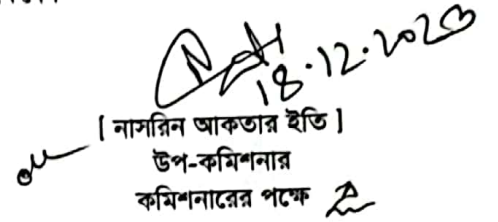 18.12.2023
[ নাসরিন আকতার ইতি ]
উপ-কমিশনার
কমিশনারের পক্ষে